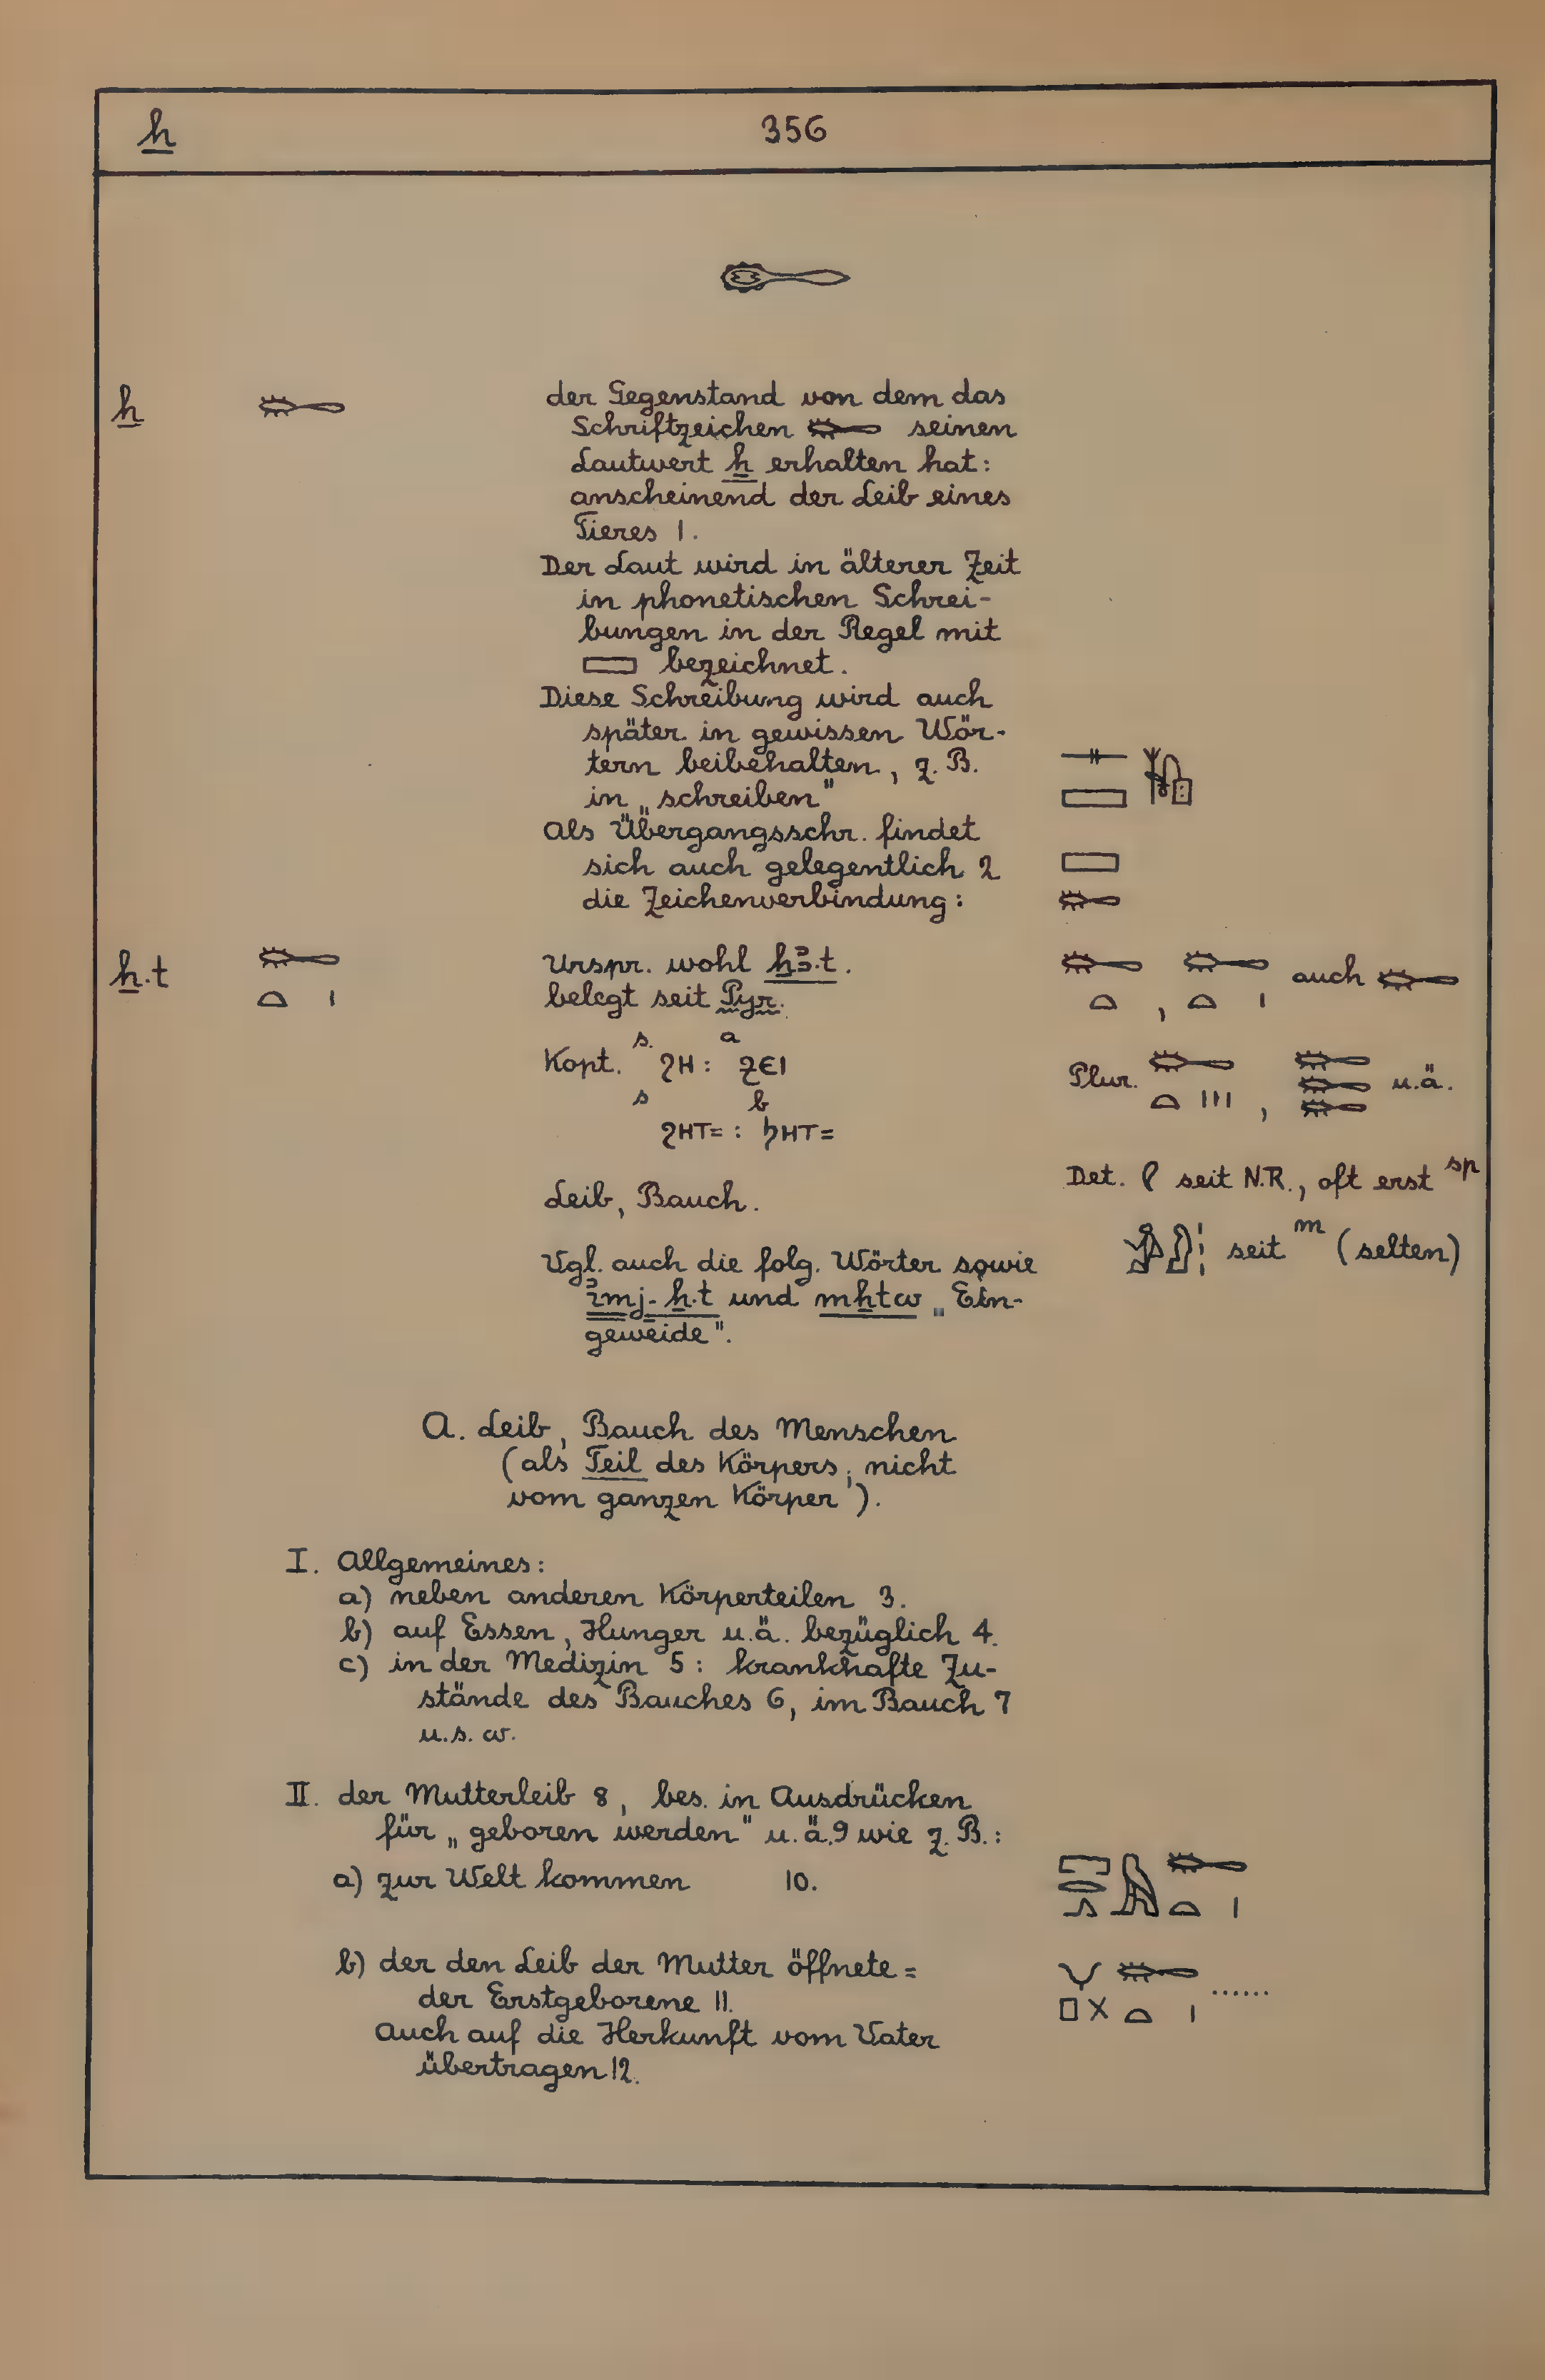 ẖ 356
𓄡
ẖ 𓄡 der Gegenstand von dem das
Schriftzeichen 𓄡 seinen
Lautwert ẖ erhalten hat:
anscheinend der Leib eines
Tieres 1.
Der Laut wird in älterer Zeit
in phonetischen Schrei-
bungen in der Regel mit
𓈙 bezeichnet.
Diese Schreibung wird auch
später in gewissen Wör-
tern beibehalten, z.B. 𓊃𓈙𓏞
in „schreiben"
Als Übergangsschr. findet
sich auch gelegentlich 2 𓈙
die Zeichenverbindung: 𓄡
ẖ.t 𓄡𓏏𓏤 Urspr. wohl ẖꜣ.t. 𓄡𓏏, 𓄡𓏏𓏤 auch 𓄡
belegt seit Pyr.
Kopt. s. ϩⲏ: a ⳉⲉⲓ Plur. 𓄡𓏏𓏥, 𓄡𓄡𓄡 u.ä.
s ϩⲏⲧ=: b ϧⲏⲧ=
Det. 𓄹 seit N.R., oft erst sp
Leib, Bauch.
𓀀𓁐𓏥 seit m (selten)
Vgl. auch die folg. Wörter sowie
imj-ẖ.t und mẖtw „Ein-
geweide".
A. Leib, Bauch des Menschen
(als Teil des Körpers, nicht
vom ganzen Körper).
I. Allgemeines:
a) neben anderen Körperteilen 3.
b) auf Essen, Hunger u.ä. bezüglich 4.
c) in der Medizin 5: krankhafte Zu-
stände des Bauches 6, im Bauch 7
u.s.w.
II. der Mutterleib 8, bes. in Ausdrücken
für „geboren werden" u.ä.9 wie z.B.:
a) zur Welt kommen 10. 𓉐𓂋𓂻𓅓𓄡𓏏𓏤
b) der den Leib der Mutter öffnete = 𓄋𓊪𓏴𓄡𓏏𓏤 ......
der Erstgeborene 11.
Auch auf die Herkunft vom Vater
übertragen 12.